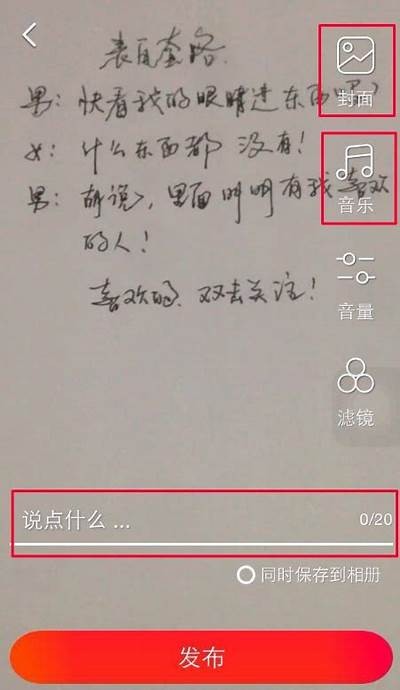 表白套路
男：快看我的眼睛进东西
封面
女：什么东西都没有！
男：胡说，里面明明有我喜欢
音乐
的人！
喜欢的，双击关注！
音量
滤镜
说点什么 ...
0/20
同时保存到相册
发布